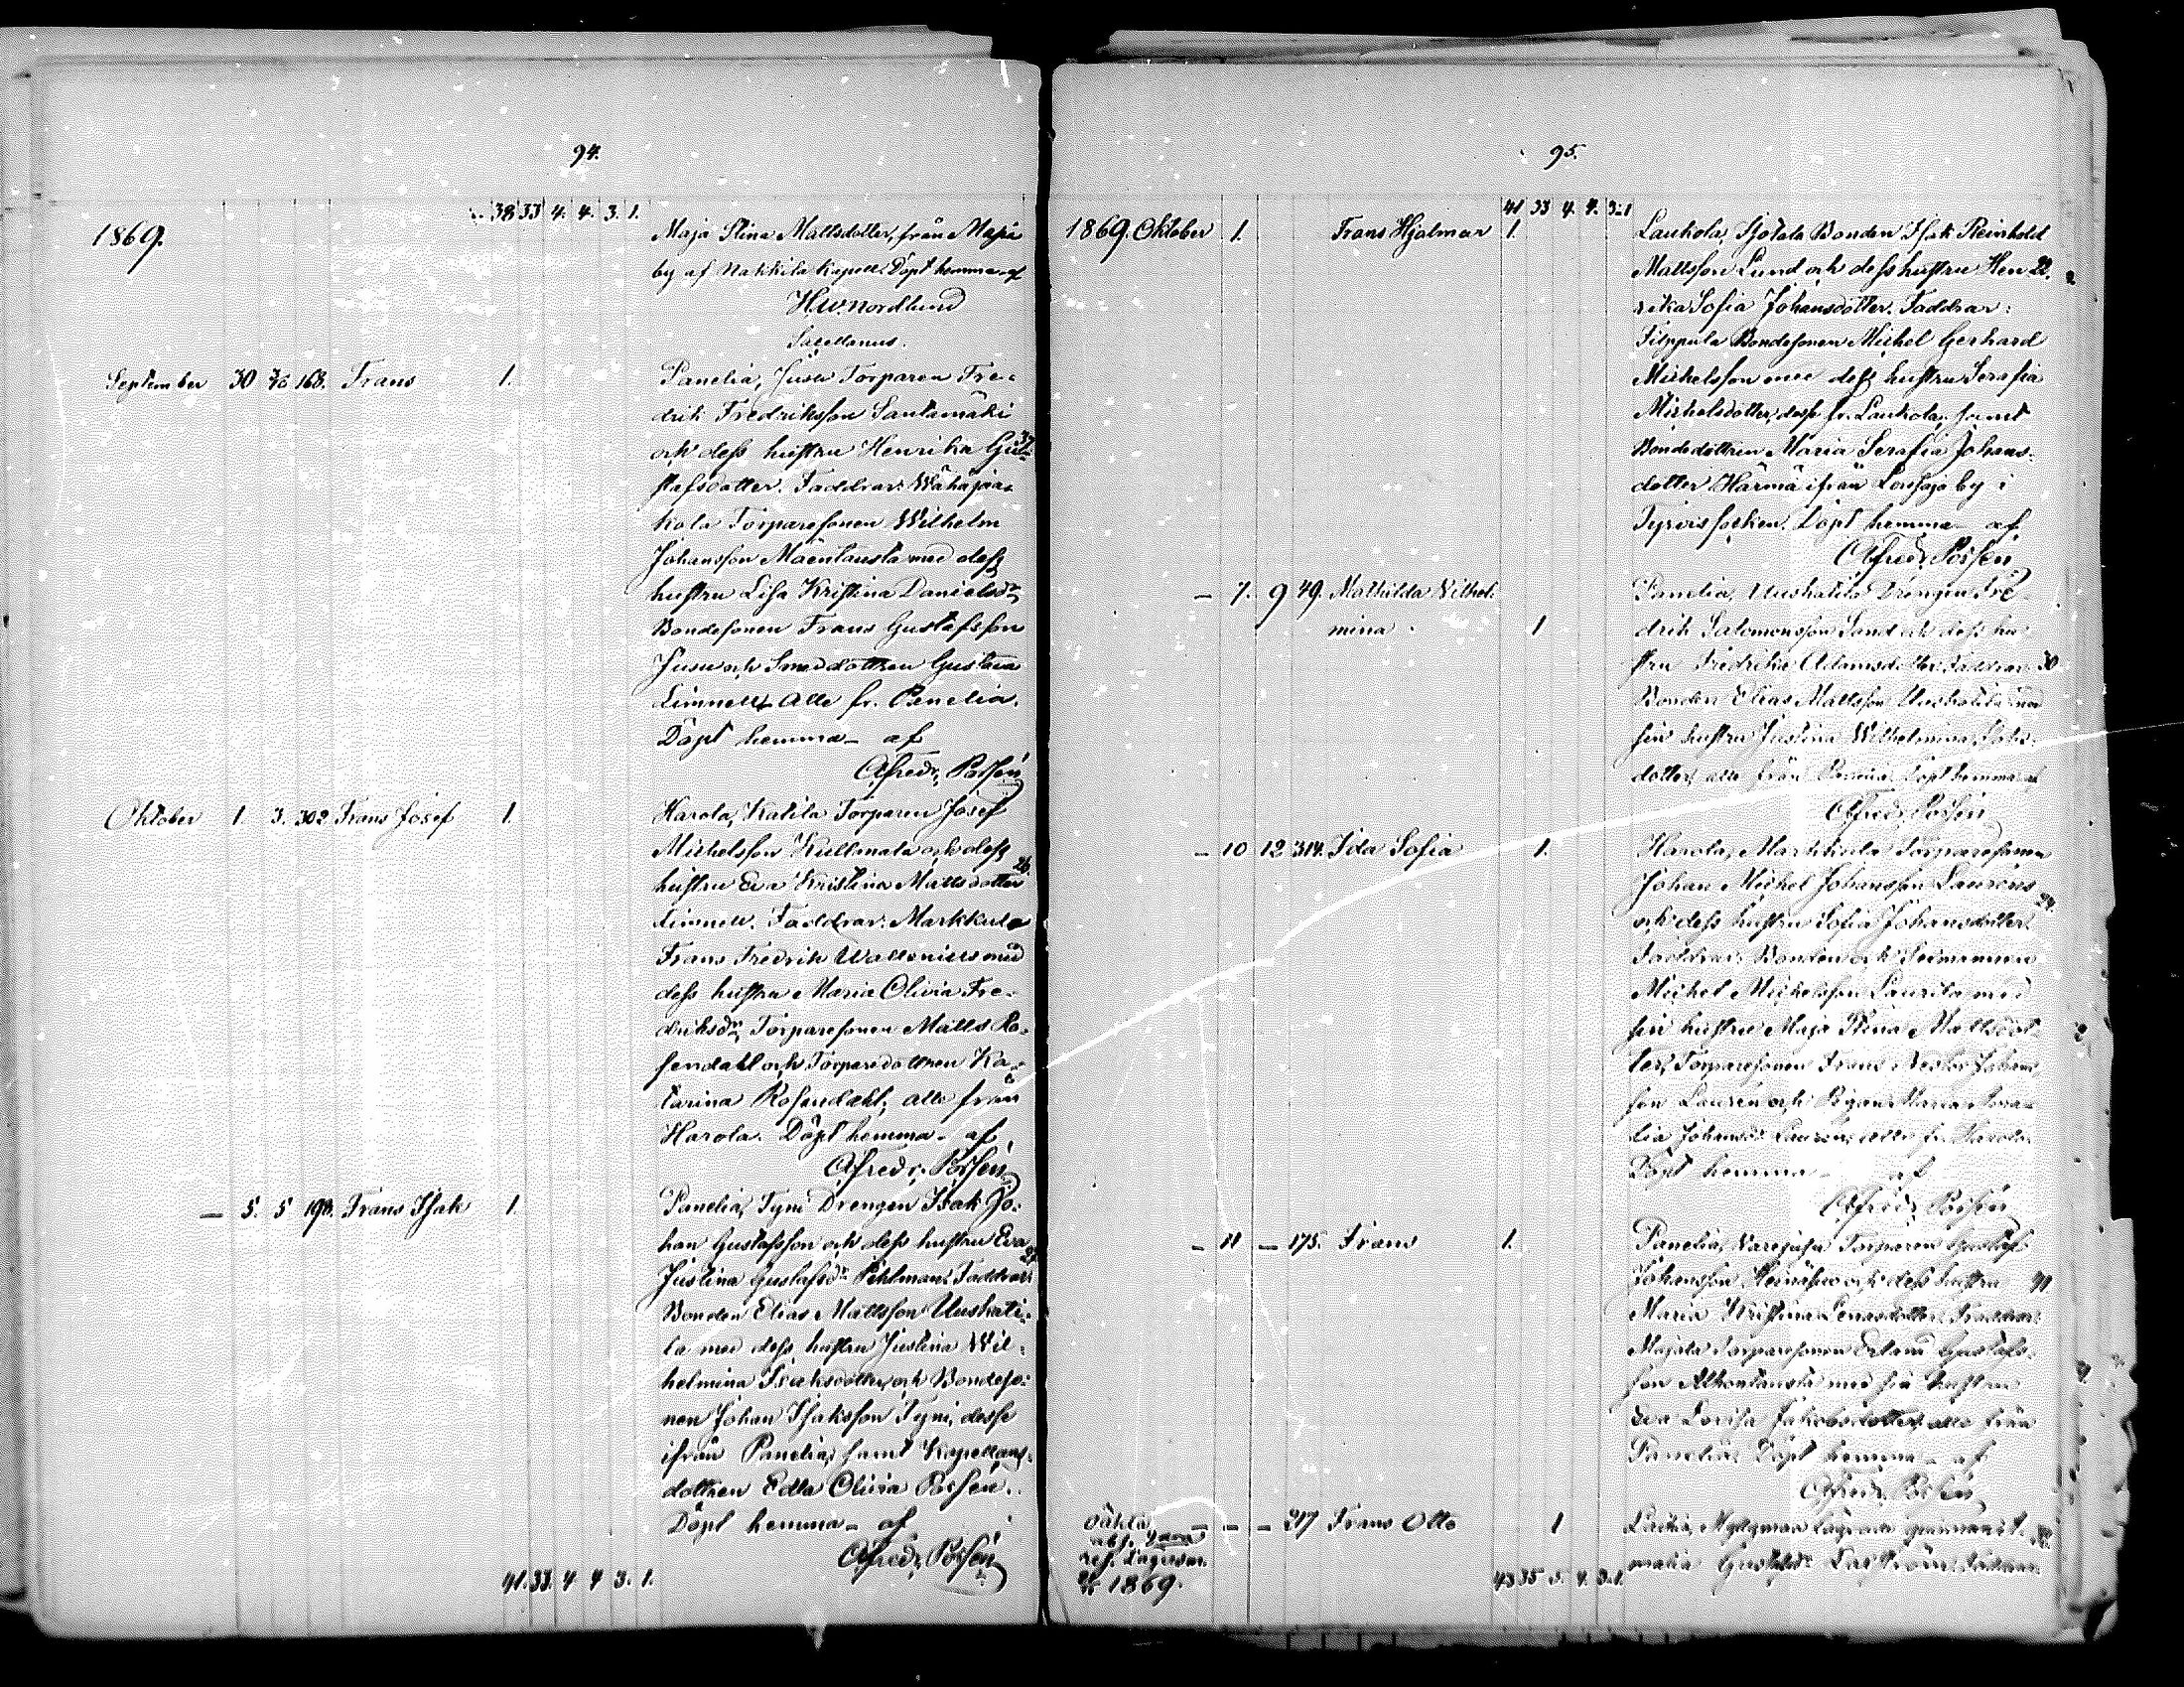 94.
38 33 4. 4. 3. 1.
1869.
Maja Stina Mattsdotter, från
by af Nakkila Kapell. Döpt hemma af
H.W. Nordlund
Sacellanus.
September 30 168. Frans 1.
Panelia, Jusu Torparen Fre-
drik Fredriksson Santamäki
och dess hustru Henrika Gu- 37
stafsdotter. Faddrar: Wähäjaa-
kola Torparesonen Wilhelm
Johansson Mäentausta med dess
hustru Lisa Kristina Danielsdr,
Bondesonen Frans Gustafsson
Jusu och Smeddottren Gustava
Limnell, alle fr. Panelia.
Döpt hemma – af
Alfred Posén
Oktober 1. 3. 302. Frans Josef 1.
Harola, Katila Torparen Josef
Michelsson Kullmala och dess
hustru Eva Kristina Mattsdotter 26.
Limnell. Faddrar: Markkula
Frans Fredrik Wallenius med
dess hustru Maria Olivia Fre-
driksdr, Torparesonen Matts Ro-
sendahl och Torparedottren Ka-
tarina Rosendahl, alle från
Harola. Döpt hemma – af
Alfred Posén
— 5. 5 198. Frans Isak 1.
Panelia, Tyni Drengen Isak Jo-
han Gustafsson och dess hustru Eva
Justina Gustafsdr Pihlman. Faddrar:
Bonden Elias Mattsson Uuskati-
la med dess hustru Justina Wil-
helmina Isaksdotter och Bondeso-
nen Johan Isaksson Tyni, desse
ifrån Panelia, samt Kapellans-
dottren Edla Olivia Posén.
Döpt hemma – af
Alfred Posén
41. 33. 4 4 3. 1.
95.
41 33 4. 4. 3. 1
1869. Oktober 1. Frans Hjalmar 1.
Laukola, Sjötala Bonden Isak Reinhold
Mattsson Lund och dess hustru Hen- 22.
rika Sofia Johansdotter. Faddrar:
Filppula Bondesonen Michel Gerhard
Michelsson med dess hustru Serafia
Michelsdotter, desse fr. Laukola, samt
Bondedottren Maria Serafia Johans-
dotter Härmä ifrån by i
Tyrvis socken. Döpt hemma – af
Alfred Posén
— 7. 9 49. Mathilda Vilhel-
mina 1
Panelia, Uuskatila Drengen Fre-
drik Salomonsson Sand och dess hu-
stru Fredrika Adamsdotter. Faddrar: 30
Bonden Elias Mattsson Uuskatila med
sin hustru Justina Wilhelmina Isaks-
dotter, alle från Panelia. Döpt hemma af
Alfred Posén
— 10 12 314. Ida Sofia 1.
Harola, Markkula Torparesonen
Johan Michel Johansson Laurens
och dess hustru Sofia Johansdotter.
Faddrar: Bonden och
Michel Michelsson Laurila med
sin hustru Maja Stina Mattsdot-
ter, Torparesonen Frans Johans-
son Lauren och Pigan Maria Ama-
lia Johansdr Lauren, alle fr. Harola.
Döpt hemma – af
Alfred Posén
— 11 — 175. Frans 1.
Panelia, Torparen Gustaf
Johansson och dess hustru 41
Maria Kristina Faddrar:
Majala Torparesonen Erland Gustafs-
son med sin hustru
Eva Lovisa Jakobsdotter, alle från
Panelia. Döpt hemma – af
Alfred Posén
Oäkta — — — 217 Frans Otto 1
1869.
43 35 5. 4. 3. 1.